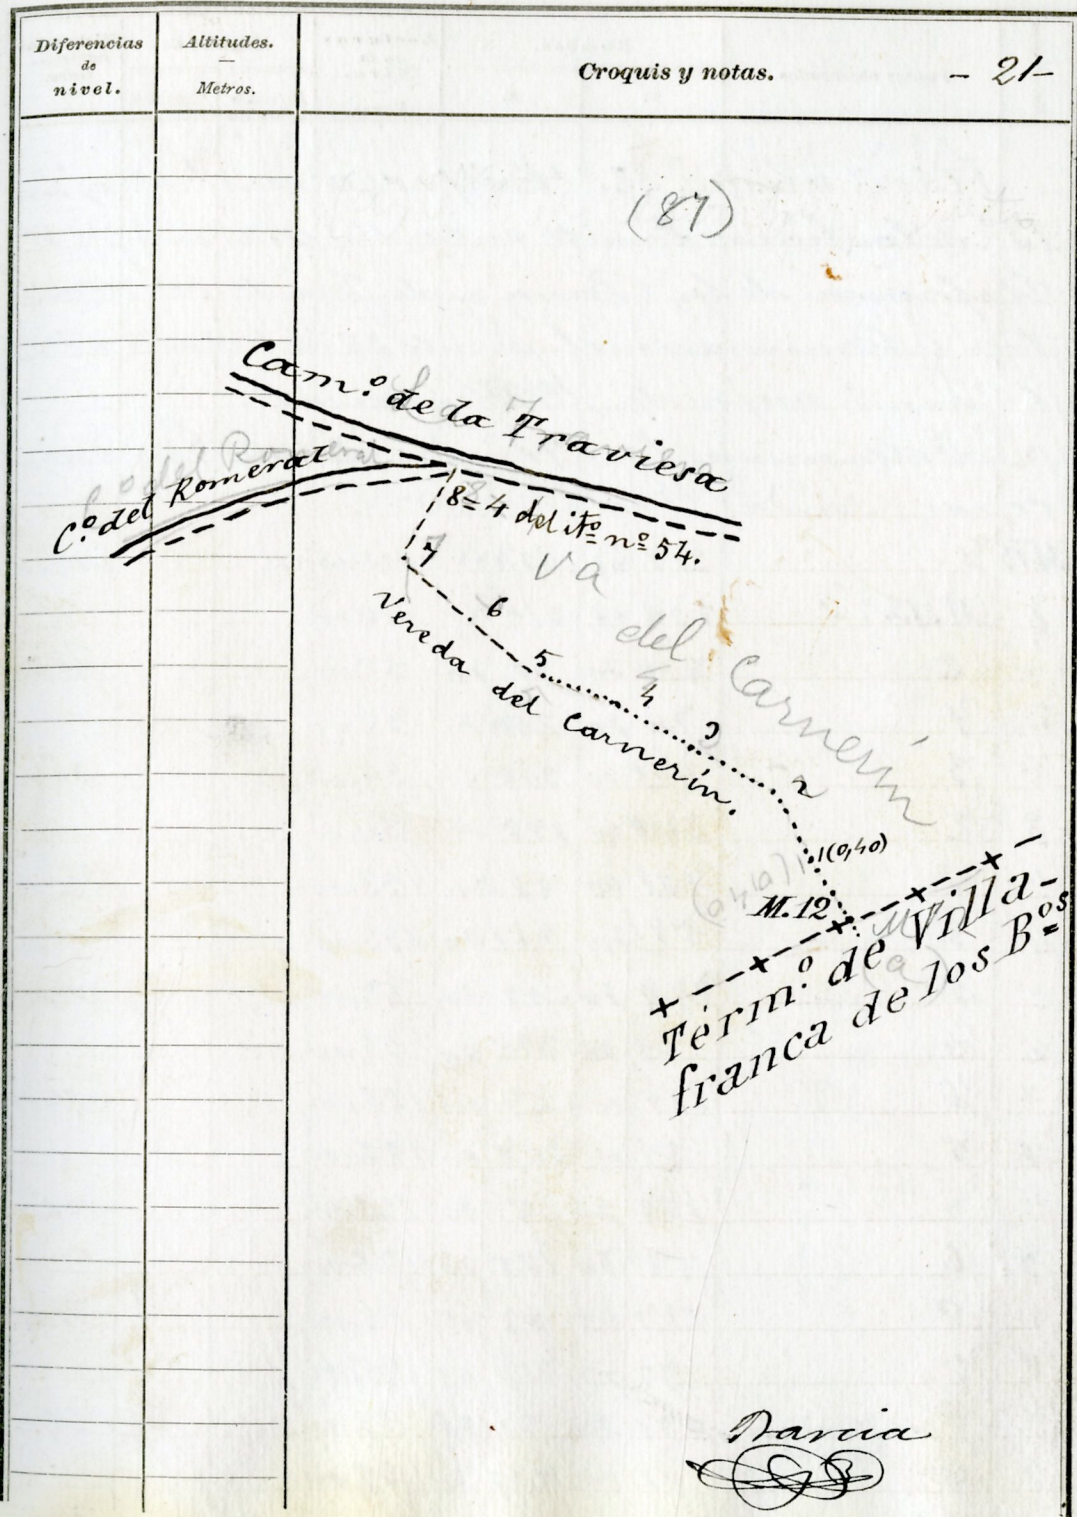 Diferencias
de
nivel.
Altitudes.
—
Metros.
Croquis y notas.
- 21-
(87)
Cam.º de la Traviesa
C.º del Romeral
Cº del Romeral
8=4 del itº nº 54.
7
Va del Carnerín
6
5
4
3
2
Vereda del Carnerín.
1(0,40)
1(0,40)
M.12
M
(a)
Térm.º de Villa-
franca de los Bºs
Barcia